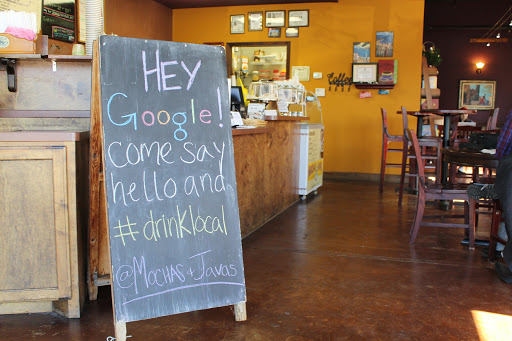 HEY
Google!
come say
hello and
#drinklocal
@MOCHAS+JAVAS
Coffee